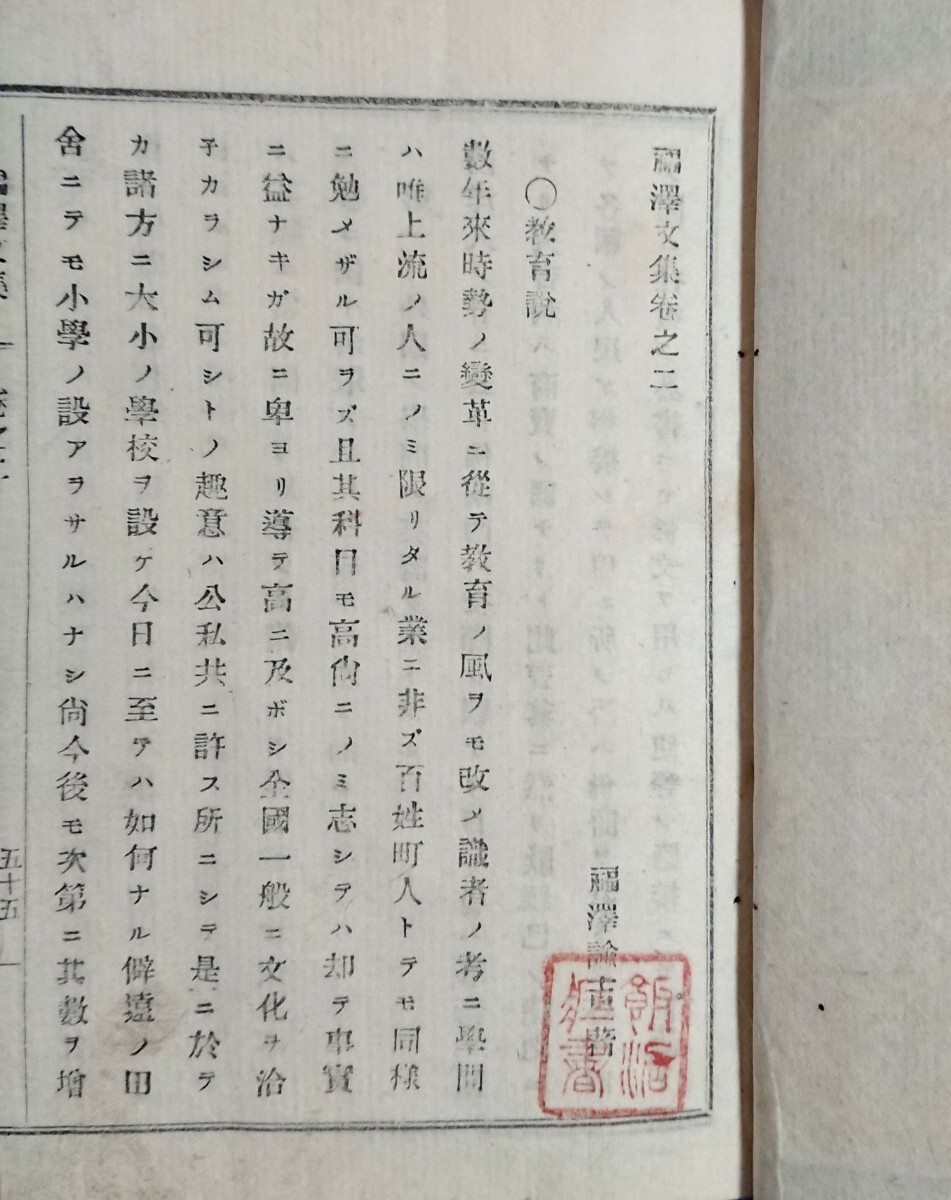 福澤文集卷之二
福澤諭吉著
〇教育説
數年來時勢ノ變革ニ從テ教育ノ風ヲモ改メ識者ノ考ニ學問
ハ唯上流ノ人ニノミ限リタル業ニ非ズ百姓町人トテモ同樣
ニ勉メザル可ラズ且其科目モ高尚ニノミ志シテハ却テ事實
ニ益ナキガ故ニ卑ヨリ導テ高ニ及ボシ全國一般ニ文化ヲ洽
子カラシム可シトノ趣意ハ公私共ニ許ス所ニシテ是ニ於テ
カ諸方ニ大小ノ學校ヲ設ケ今日ニ至テハ如何ナル僻遠ノ田
舍ニテモ小學ノ設アラサルハナシ尚今後モ次第ニ其數ヲ增
五十五